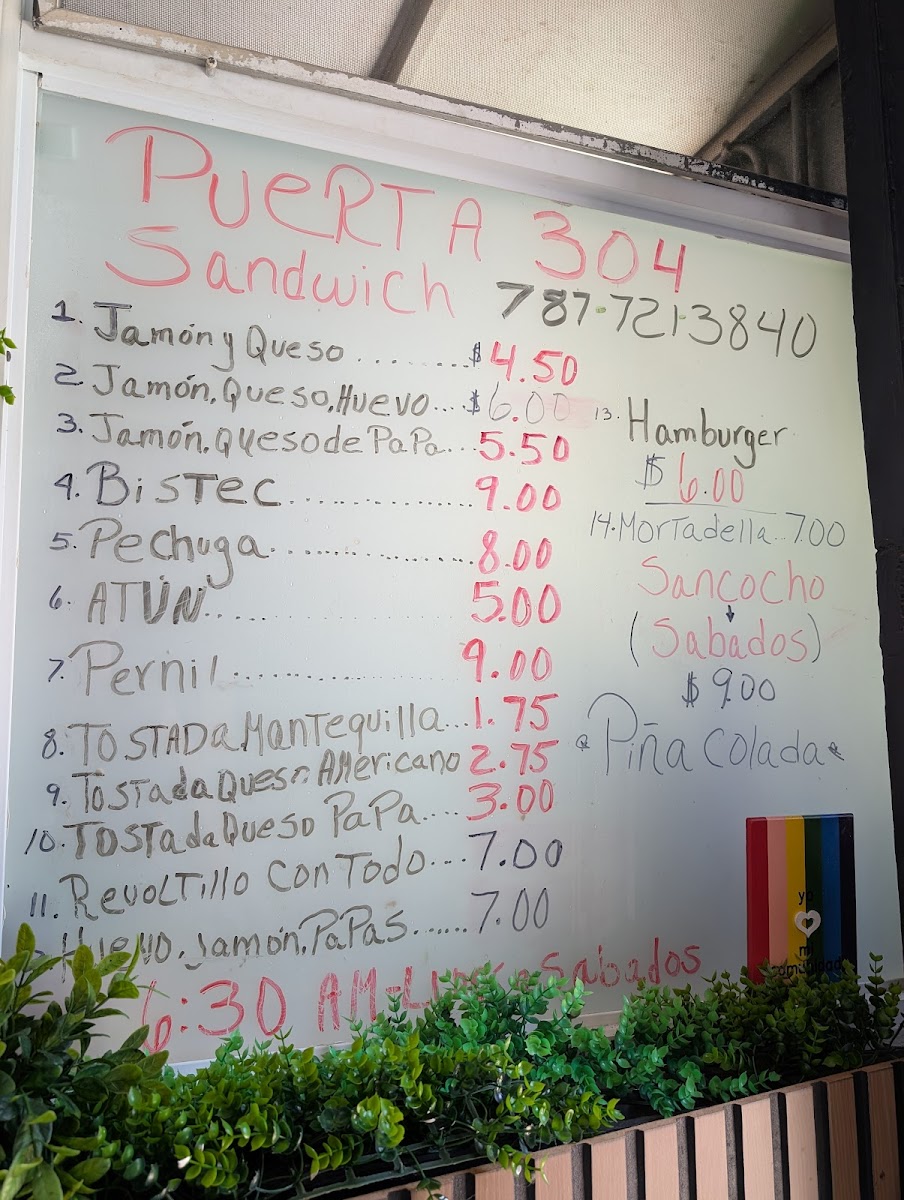 PUERTA 304
Sandwich
787·721·3840
1. Jamón y Queso ........ $4.50
2. Jamón, Queso, Huevo.... $6.00
3. Jamón, Queso de Papa... 5.50
4. Bistec .................. 9.00
5. Pechuga .................. 8.00
6. ATÚN .................. 5.00
7. Pernil .................. 9.00
8. Tostada Mantequilla... 1.75
9. Tostada Queso Americano 2.75
10. Tostada Queso Papa.... 3.00
11. Revoltillo con Todo... 7.00
Huevo, Jamón, Papas...... 7.00
6:30 AM - Sabados
13. Hamburger
$6.00
14. Mortadella... 7.00
Sancocho
(Sabados)
$9.00
Piña Colada
yo
mi